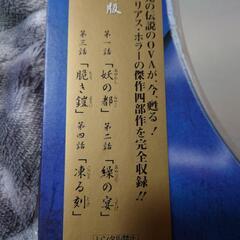 の伝説のOVAが、今、甦る!
リアス・ホラーの傑作四部作を完全収録!!
版
第一話「妖の都」
第二話「繰の宴」
第三話「脆き鎧」
第四話「凍る刻」
レンタル禁止